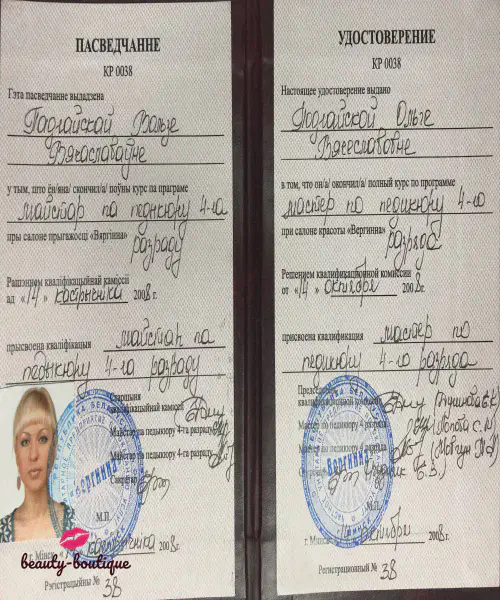 ПАСВЕДЧАННЕ
КР 0038
Гэта пасведчанне выдадзена
Падгайскай Вользе
Вячаславаўне
у тым, што ён/яна/ скончыл/а/ поўны курс па праграме
майстар па педыкюру 4-га
пры салоне прыгажосці «Вяргінна»
разраду
Рашэннем кваліфікацыйнай камісіі
ад «14» кастрычніка 2008 г.
прысвоена кваліфікацыя майстар па
педыкюру 4-го разраду
Старшыня
кваліфікацыйнай камісіі
Майстар па педыкюру 4-га разраду
Майстар па педыкюру 4-га разраду
Сакратар
М.П.
г. Мінск кастрычніка 2008г.
Рэгістрацыйны № 38
beauty-boutique
УДОСТОВЕРЕНИЕ
КР 0038
Настоящее удостоверение выдано
Подгайской Ольге
Вячеславовне
в том, что он/а/ окончил/а/ полный курс по программе
мастер по педикюру 4-го
при салоне красоты «Вергинна»
разряда
Решением квалификационной комиссии
от «14» октября 2008г.
присвоена квалификация мастер по
педикюру 4-го разряда
квалификационной комиссии
Мастер по педикюру 4 разряда
Мастер по педикюру 4 разряда
М.П.
г. Минск октября 2008г.
Регистрационный № 38
Вергинна